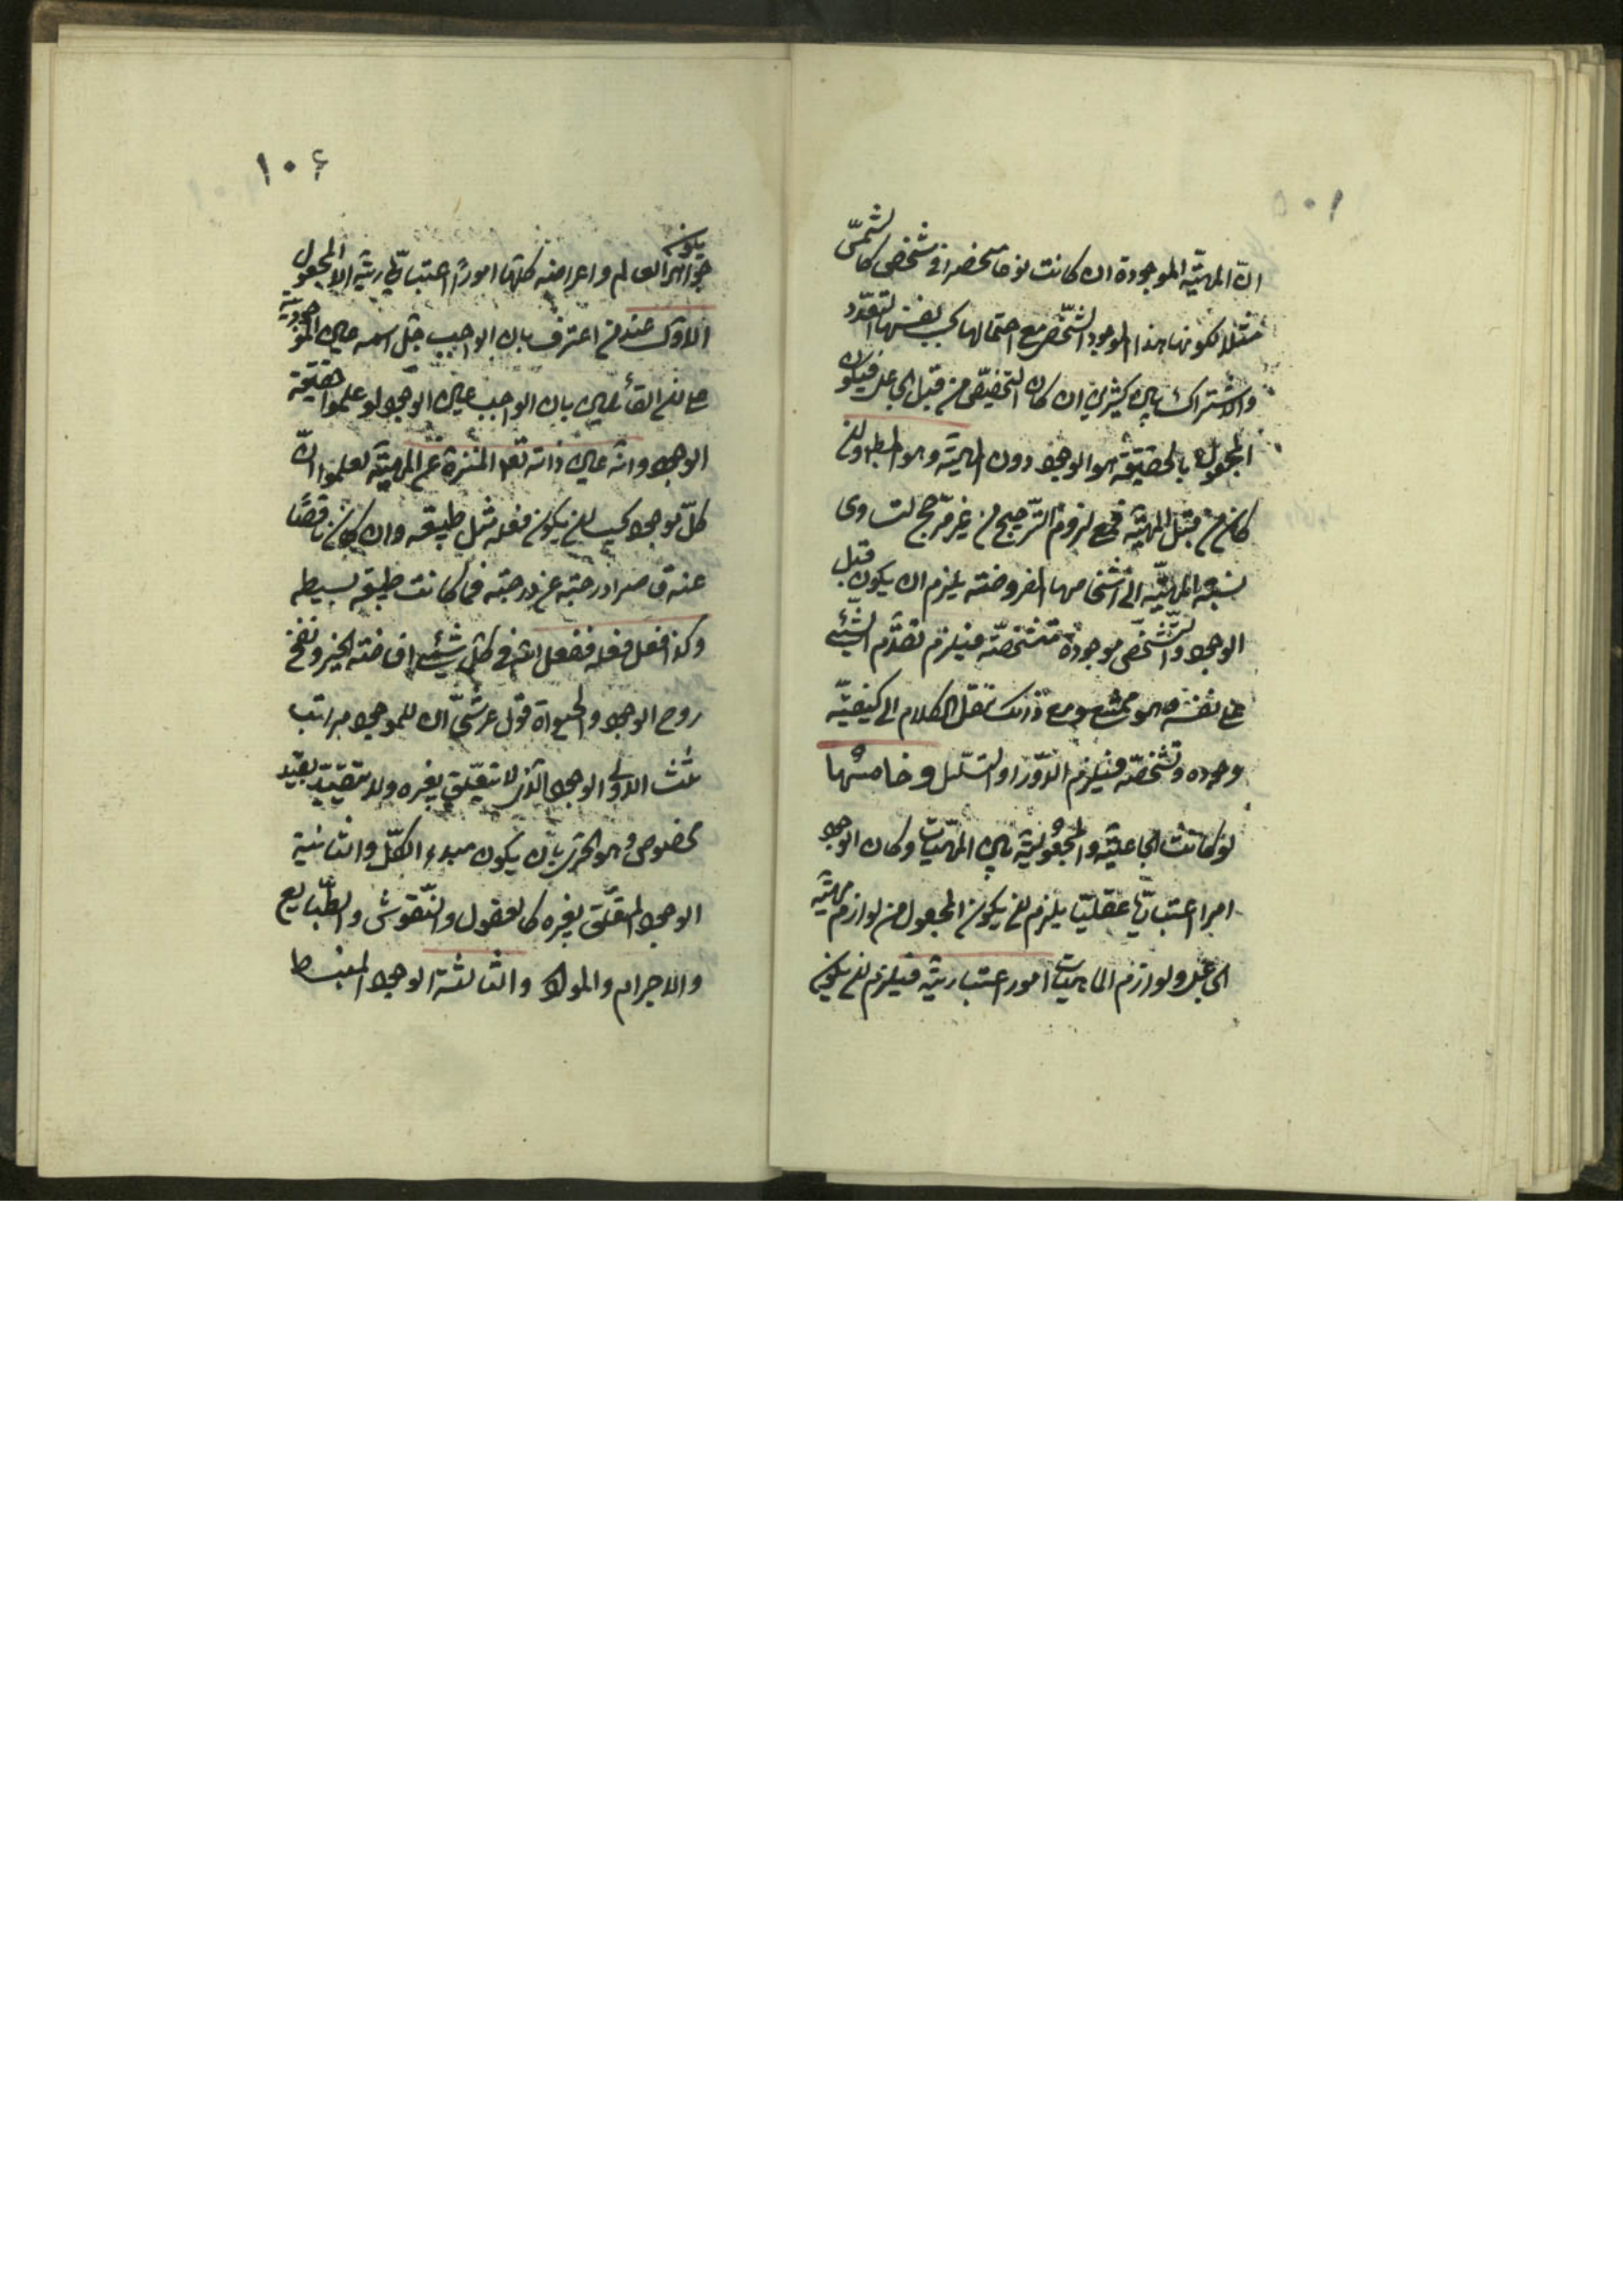 ١٠٥
ان المهيّة الموجودة ان كانت نوعا منحصرا في شخص كالشمس
مثلا فكونها هذا الموجود الشخص مع احتمالها بحسب نفسها التعدد
والاشتراك بين كثيرين ان كان التخصيص من قبل الجاعل فيكون
المجعول بالحقيقة هو الوجود دون الماهية وهو المط وان
كان من قبل المهية فمع لزوم الترجيح من غير مرجح لتساوى
نسبة المهيّة الى اشخاصها المفروضة يلزم ان يكون قبل
الوجود والتشخص موجودة متشخصة فيلزم تقدم الشئ
على نفسه وهو ممتنع ومع ذلك ننقل الكلام الى كيفيّة
وجوده وتشخصه فيلزم الدور او التسلسل وخامسها
لو كانت الجاعلية والمجعولية بين المهيات وكان الوجود
امرا اعتباريا عقليا يلزم ان يكون المجعول من لوازم مهيّة
الجاعل ولوازم الماهيات امور اعتبارية فيلزم ان يكون
١٠٦
يكون
جواهر العالم واعراضه كلها امورًا اعتبارية الا المجعول
الاول عند من اعترف بان الواجب جل اسمه عين الموجودية
على ان القائلين بان الواجب عين الوجود لو علموا حقيقة
الوجود وانه عين ذاته تعالى المنزه عن المهيّة لعلموا انّ
كلّ موجود يجب ان يكون فعله مثل طبيعته وان كان ناقصًا
عنه قاصرا درجته عن درجته فما كانت طبيعته بسيطه
وكذا فعل فعله ففعل الله في كل شئ افاضة الخير ونفخ
روح الوجود والحيوة قول عرشيّ ان للموجود مراتب
ثلث الاولى الوجود الذى لا يتعلق بغيره ولا يتقيد بقيد
مخصوص وهو الحرى بان يكون مبدء الكل والثانية
الوجود المتعلق بغيره كالعقول والنفوس والطبايع
والاجرام والمواد والثالثة الوجود المنبسط